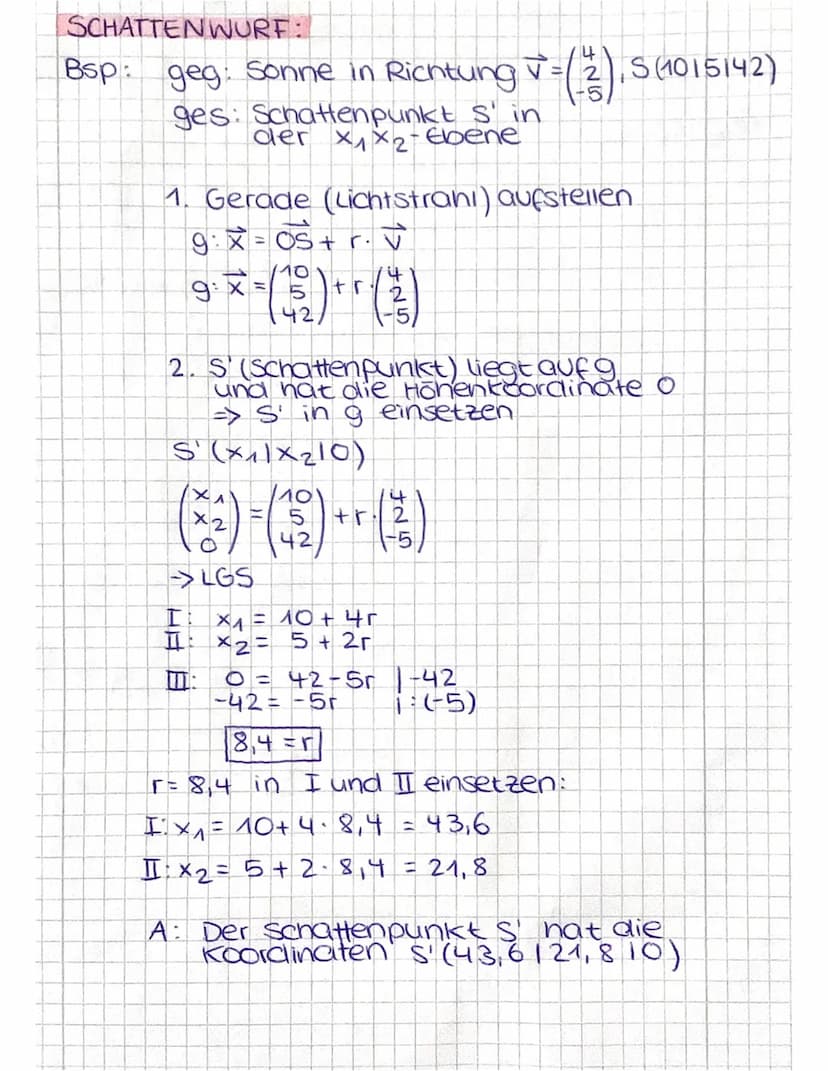 SCHATTENWURF:
Bsp: geg: Sonne in Richtung v⃗ = (4 2 -5), S(10|5|42)
ges: Schattenpunkt S' in
der x₁x₂-Ebene
1. Gerade (Lichtstrahl) aufstellen
g: x⃗ = OS⃗ + r · v⃗
g: x⃗ = (10 5 42) + r · (4 2 -5)
2. S' (Schattenpunkt) liegt auf g
und hat die Höhenkoordinate 0
=> S' in g einsetzen
S' (x₁|x₂|0)
(x₁ x₂ 0) = (10 5 42) + r · (4 2 -5)
-> LGS
I: x₁ = 10 + 4r
II: x₂ = 5 + 2r
III: 0 = 42 - 5r |-42
-42 = -5r | :(-5)
8,4 = r
r = 8,4 in I und II einsetzen:
I: x₁ = 10 + 4 · 8,4 = 43,6
II: x₂ = 5 + 2 · 8,4 = 21,8
A: Der Schattenpunkt S' hat die
Koordinaten S' (43,6|21,8|0)